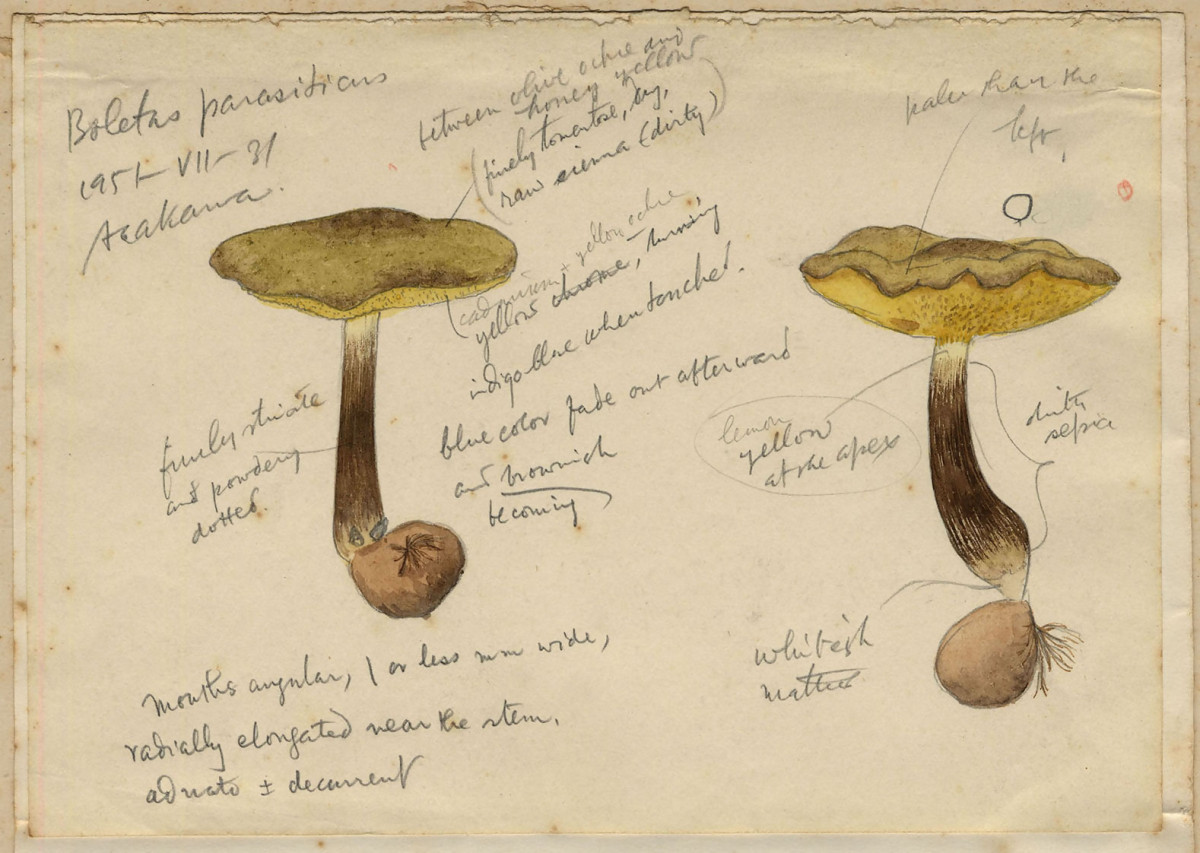 Boletus parasiticus
1951-VII-31
Asakawa.
between olive ochre and
honey yellow
(finely tomentose, dry,
raw sienna (dirty)
paler than the
left,
(cadmium + yellow ochre
yellow chrome, turning
indigo blue when touched.
blue color fade out afterward
and brownish
becoming
finely striate
and powdery
dotted.
lemon
yellow
at the apex
dirty
sepia
whitish
matted
mouths angular, 1 or less mm wide,
radially elongated near the stem,
adnato ± decurrent